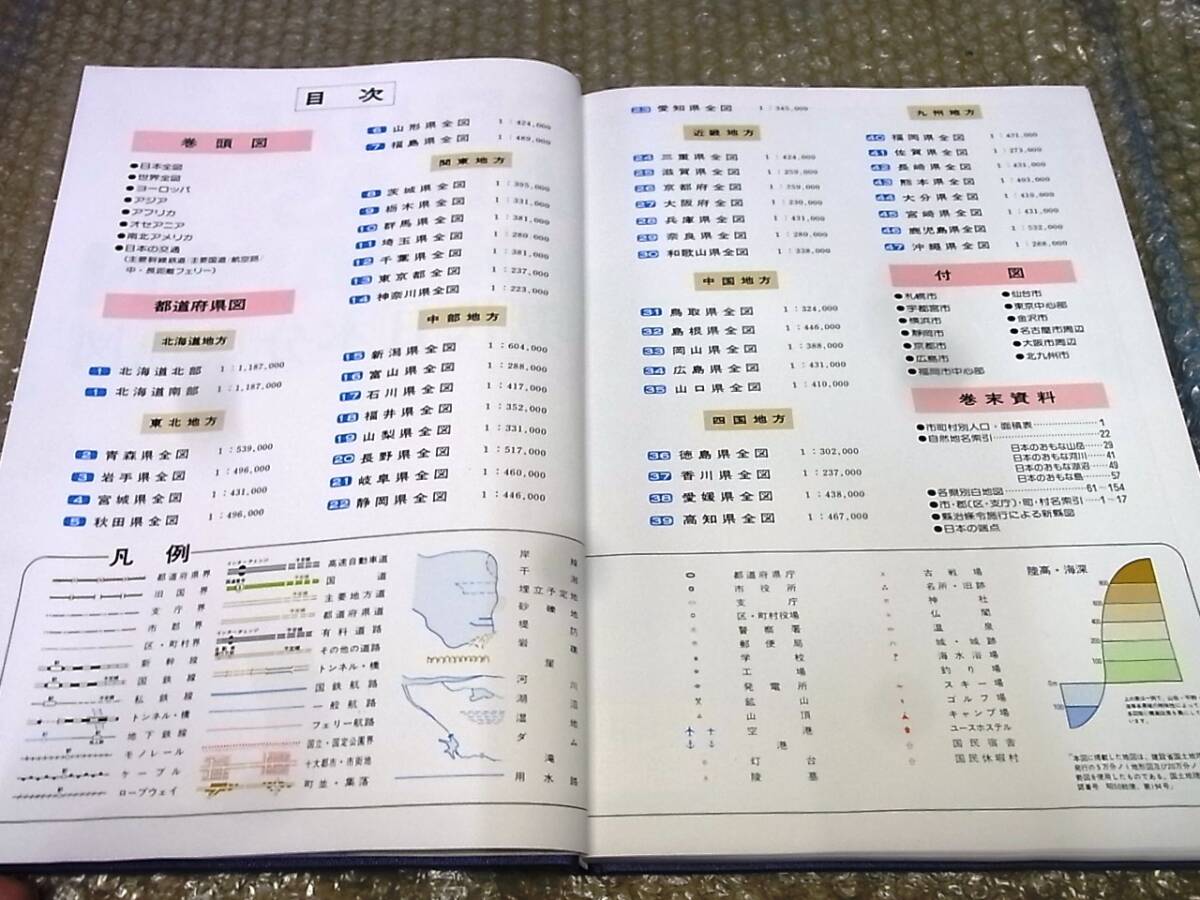 目次
巻頭図
●日本全図
●世界全図
●ヨーロッパ
●アジア
●アフリカ
●オセアニア
●南北アメリカ
●日本の交通
(主要幹線鉄道/主要国道/航空路/
中・長距離フェリー)
都道府県図
北海道地方
1 北海道北部 1:1,187,000
1 北海道南部 1:1,187,000
東北地方
2 青森県全図 1:539,000
3 岩手県全図 1:496,000
4 宮城県全図 1:431,000
5 秋田県全図 1:496,000
6 山形県全図 1:424,000
7 福島県全図 1:489,000
関東地方
8 茨城県全図 1:395,000
9 栃木県全図 1:331,000
10 群馬県全図 1:381,000
11 埼玉県全図 1:280,000
12 千葉県全図 1:381,000
13 東京都全図 1:237,000
14 神奈川県全図 1:223,000
中部地方
15 新潟県全図 1:604,000
16 富山県全図 1:288,000
17 石川県全図 1:417,000
18 福井県全図 1:352,000
19 山梨県全図 1:331,000
20 長野県全図 1:517,000
21 岐阜県全図 1:460,000
22 静岡県全図 1:446,000
23 愛知県全図 1:345,000
近畿地方
24 三重県全図 1:424,000
25 滋賀県全図 1:259,000
26 京都府全図 1:359,000
27 大阪府全図 1:230,000
28 兵庫県全図 1:431,000
29 奈良県全図 1:280,000
30 和歌山県全図 1:338,000
中国地方
31 鳥取県全図 1:324,000
32 島根県全図 1:446,000
33 岡山県全図 1:388,000
34 広島県全図 1:431,000
35 山口県全図 1:410,000
四国地方
36 徳島県全図 1:302,000
37 香川県全図 1:237,000
38 愛媛県全図 1:438,000
39 高知県全図 1:467,000
九州地方
40 福岡県全図 1:471,000
41 佐賀県全図 1:273,000
42 長崎県全図 1:431,000
43 熊本県全図 1:403,000
44 大分県全図 1:410,000
45 宮崎県全図 1:431,000
46 鹿児島県全図 1:532,000
47 沖縄県全図 1:288,000
付図
●札幌市
●宇都宮市
●横浜市
●静岡市
●京都市
●広島市
●福岡市中心部
●仙台市
●東京中心部
●金沢市
●名古屋市周辺
●大阪市周辺
●北九州市
巻末資料
●市町村別人口・面積表 1
●自然地名索引 22
日本のおもな山岳 29
日本のおもな河川 41
日本のおもな湖沼 49
日本のおもな島 57
●各県別白地図 61~154
●市・郡(区・支庁)・町・村名索引 1~17
●縣治條令施行による新縣図
●日本の端点
凡例
都道府県界
旧国界
支庁界
市郡界
区・町村界
新幹線
国鉄線
私鉄線
トンネル・橋
地下鉄線
モノレール
ケーブル
ロープウェイ
高速自動車道
国道
主要地方道
都道府県道
有料道路
その他の道路
トンネル・橋
国鉄航路
一般航路
フェリー航路
国立・国定公園界
十大都市・市街地
町並・集落
岸線
干潟
埋立予定地
砂礫地
堤防
岩礁
崖
河川
湖沼
湿地
ダム
滝
用水路
都道府県庁
市役所
支庁
区・町村役場
警察署
郵便局
学校
工場
発電所
鉱山
山頂
空港
港
灯台
陵墓
古戦場
名所・旧跡
神社
仏閣
温泉
城・城跡
海水浴場
釣り場
スキー場
ゴルフ場
キャンプ場
ユースホステル
国民宿舎
国民休暇村
陸高・海深